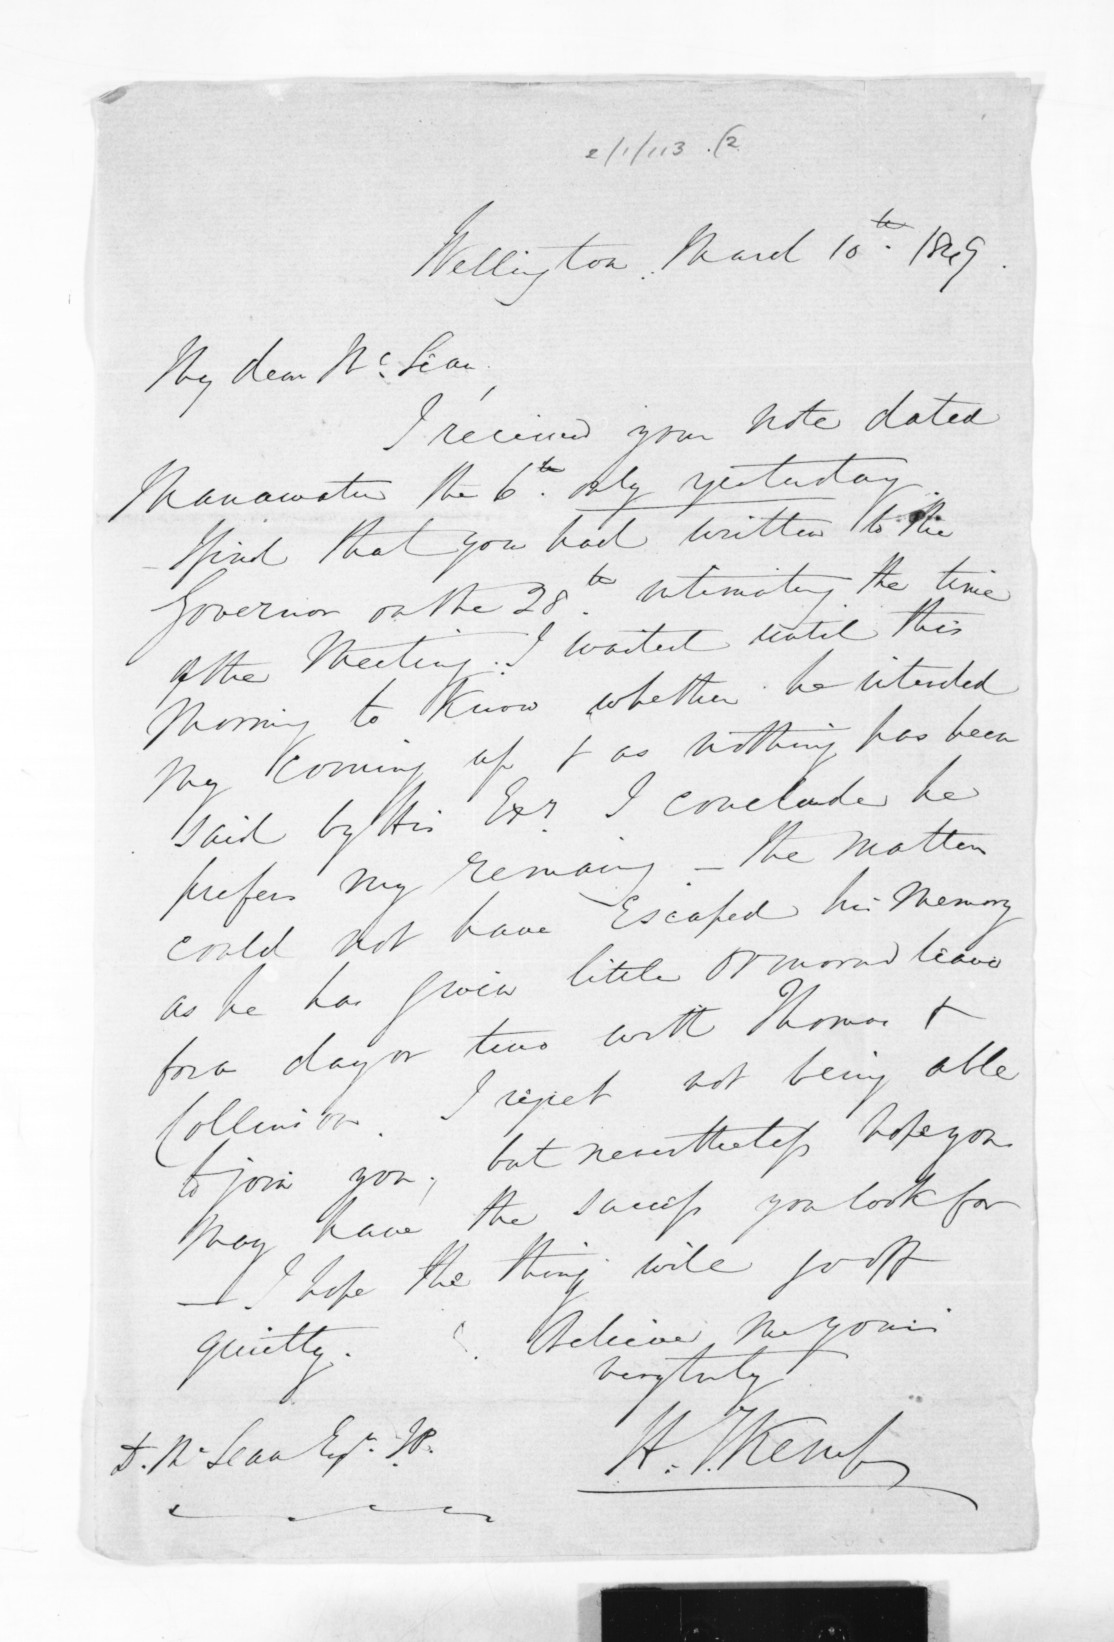 2/1/113 (2
Wellington. March 10th. 1849.
My dear McLean,
I received your note dated
Manawatu the 6th. only yesterday.
- I find that you had written to the
Governor on the 28th. intimating the time
of the Meeting. I waited until this
Morning to Know whether he intended
my coming up & as nothing has been
said by His Exy. I conclude he
prefers my remaing - the matter
could not have Escaped his Memory
as he has given little Ormond leave
for a day or two with Thomas &
Collinson. I regret not being able
to join you, but nevertheless hope you
may have the success you look for
- I hope the thing will go off
quietly. Believe me yours
very truly
H. T. Kemp
D. McLean Esqr. J.P.